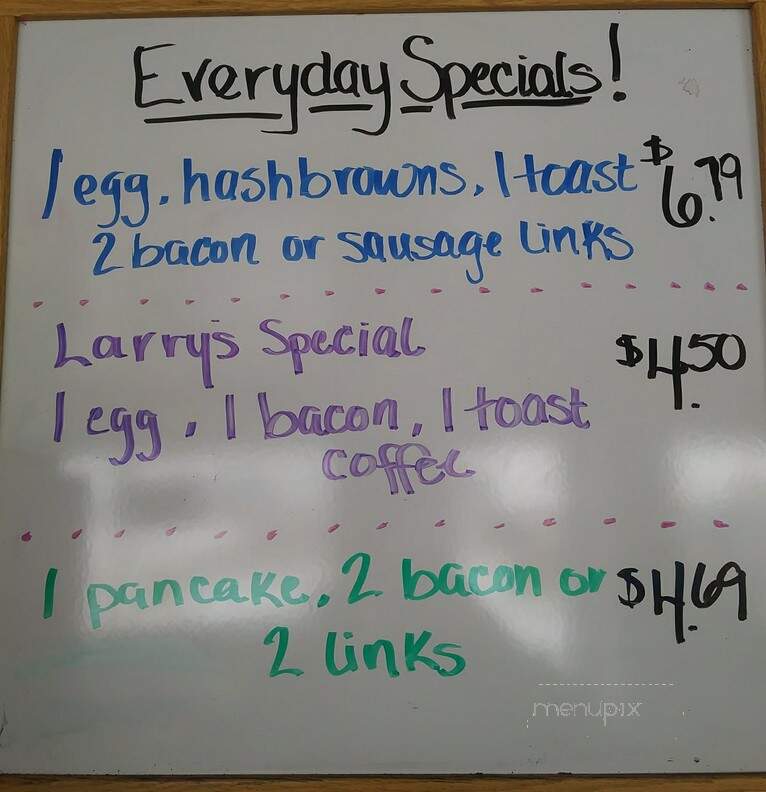 Everyday Specials!
1 egg, hashbrowns, 1 toast $6.79
2 bacon or sausage links
Larry's Special $4.50
1 egg, 1 bacon, 1 toast
coffee
1 pancake, 2 bacon or $4.69
2 links
menupix